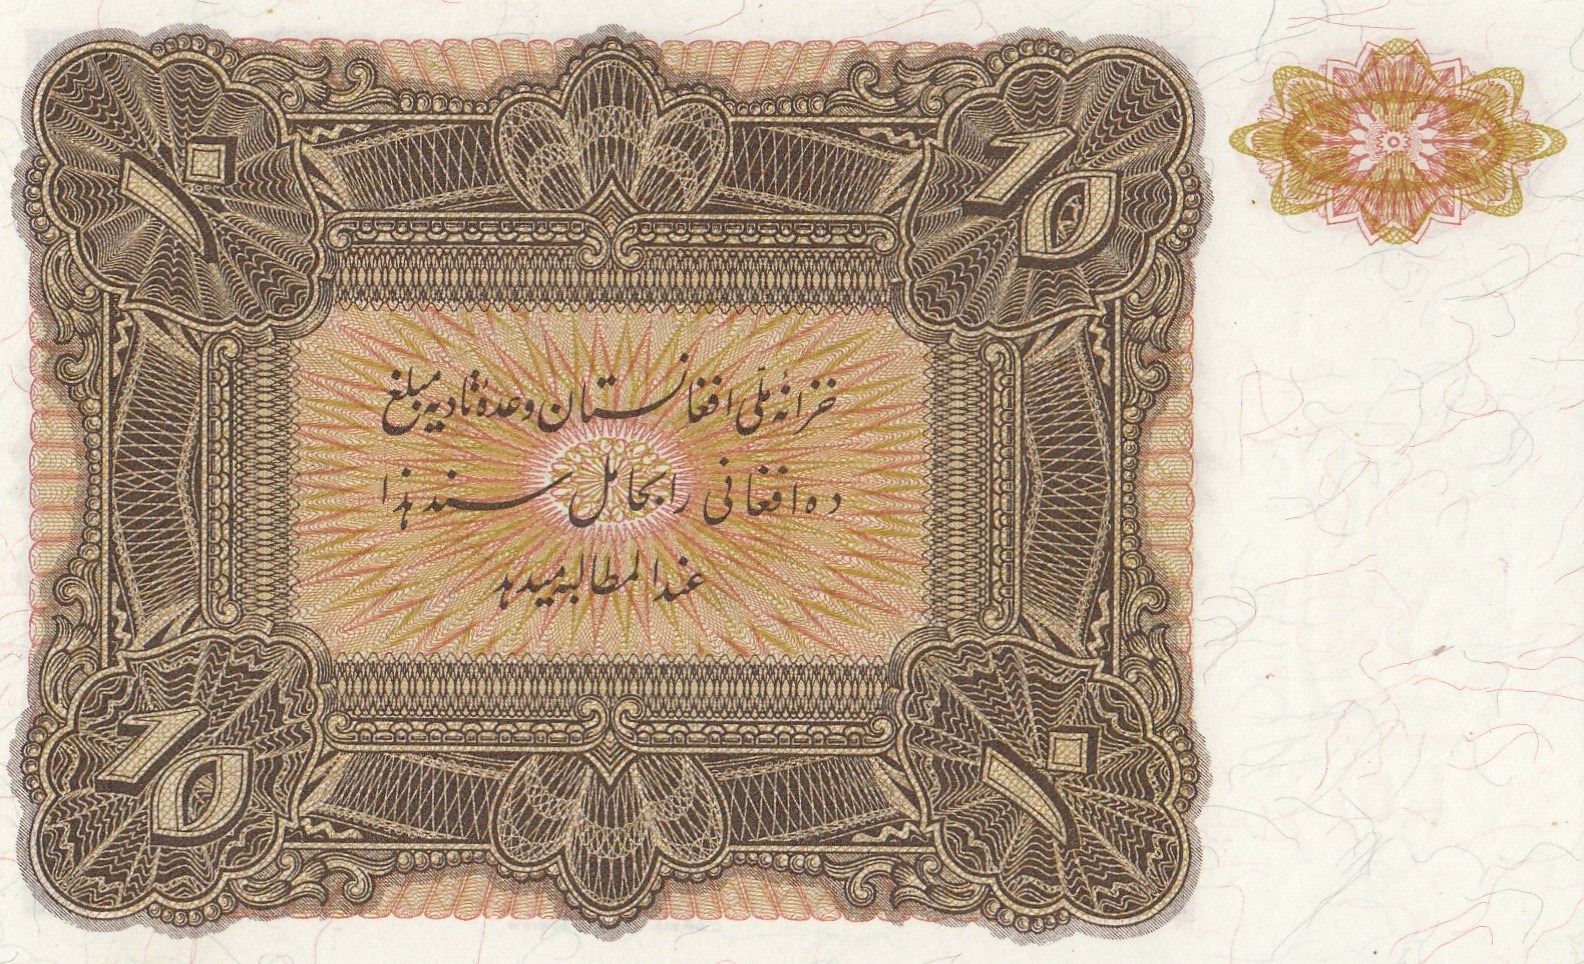 ۱۰
10
خزانهٔ ملّی افغانستان وعدهٔ تادیه مبلغ
ده افغانی را بحامل سند هذا
عندالمطالبه میدهد
10
۱۰